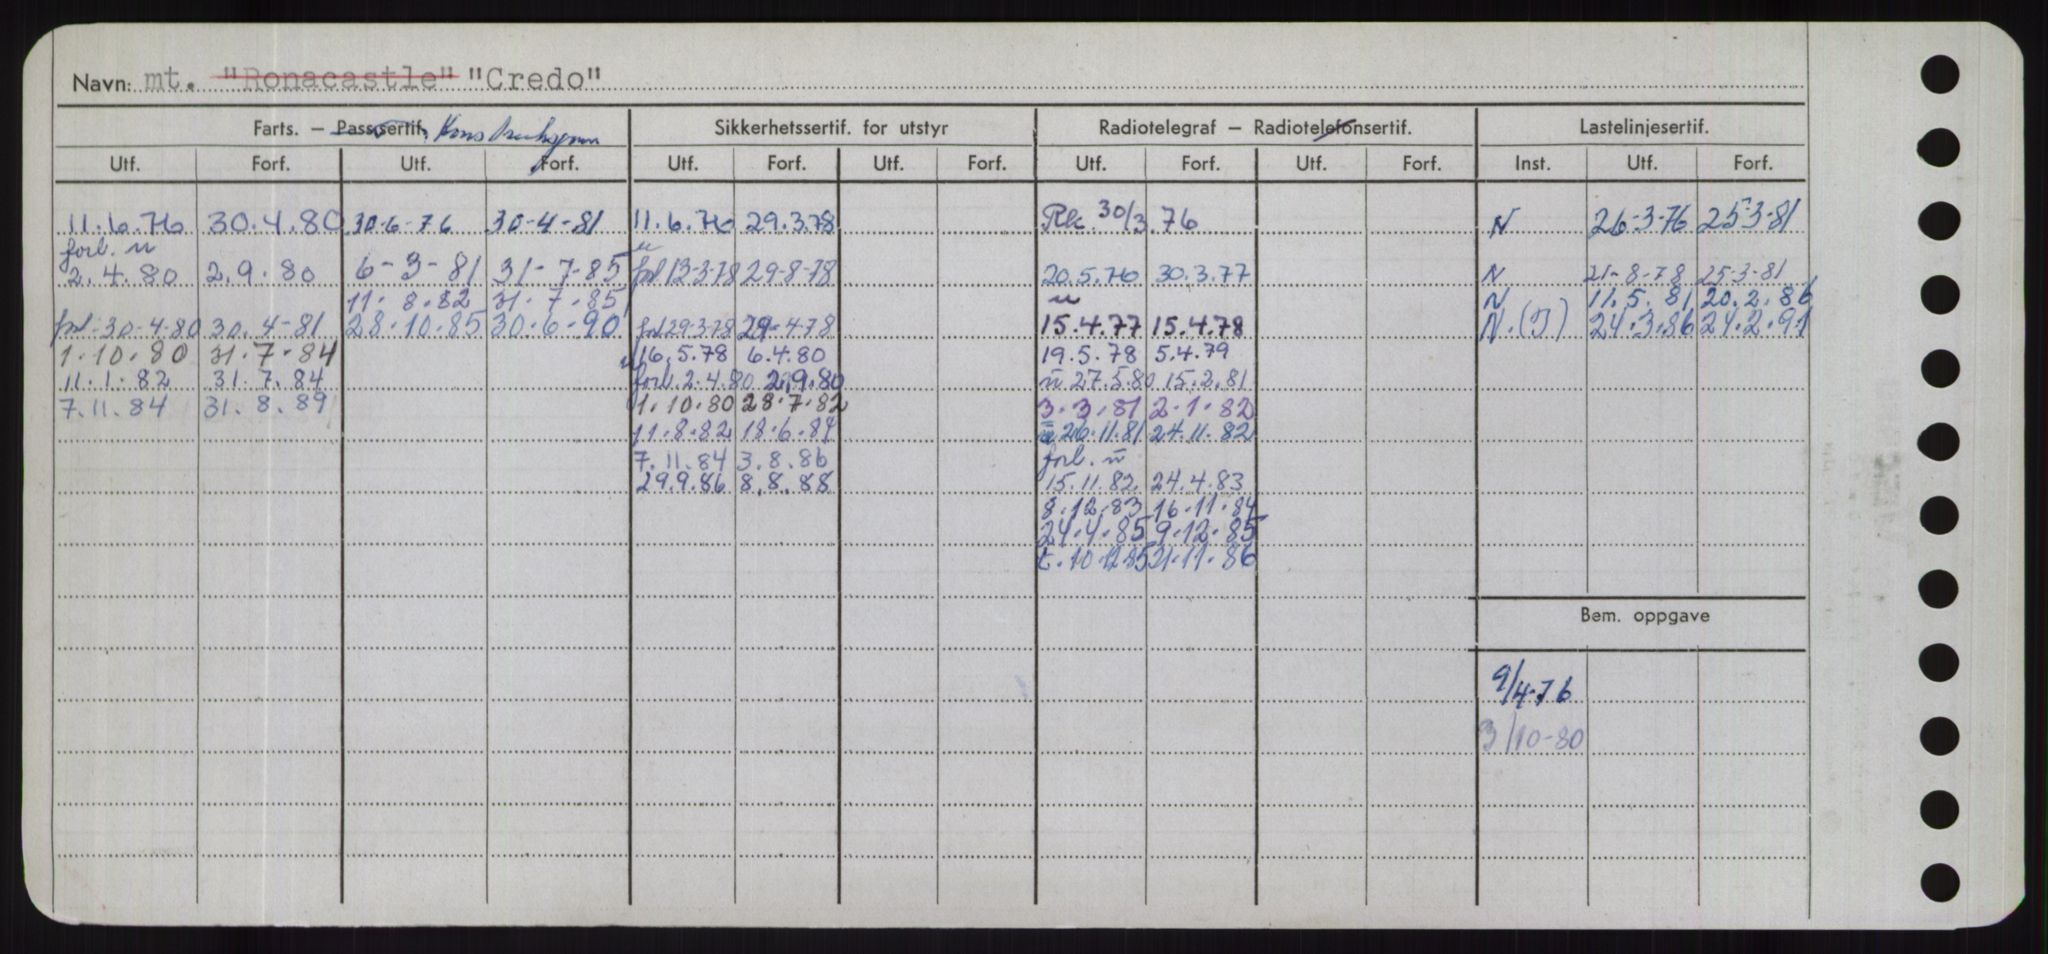 Navn: mt. "Ronacastle" "Credo"
Farts. – Pass.sertif. Sikkerhetssertif. for utstyr Radiotelegraf – Radiotelefonsertif. Lastelinjesertif.
Utf. Forf. Utf. Forf. Utf. Forf. Utf. Forf. Utf. Forf. Utf. Forf. Inst. Utf. Forf.
11.6.76 30.4.80 30-6-76 30-4-81 11.6.76 29.3.78 Rk. 30/3.76 N 26-3-76 25-3-81
forl. u u
2.4.80 2.9.80 6-3-81 31-7-85 forl 13-3-78 29-8-78 20.5.76 30.3.77 N 21-8-78 25-3-81
11.8.82 31.7.85 u N 11.5.81 20.2.86
forl-30-4-80 30.4-81 28.10.85 30.6.90 forl 29-3-78 29-4-78 15.4.77 15.4.78 N.(I) 24.3.86 24.2.91
1.10.80 31.7.84 16.5.78 6.4.80 19.5.78 5.4.79
11.1.82 31.7.84 forl. 2.4.80 2.9.80 u 27.5.80 15.2.81
7.11.84 31.8.89 1.10.80 28.7.82 3.3.81 2.1.82
11.8.82 18.6.84 u 26.11.81 24.11.82
7.11.84 3.8.86 forl. u
29.9.86 8.8.88 15.11.82 24.4.83
8.12.83 16.11.84
24.4.85 9.12.85
t.10.12.85 21.11.86
Bem. oppgave
9/4-76
3/10-80